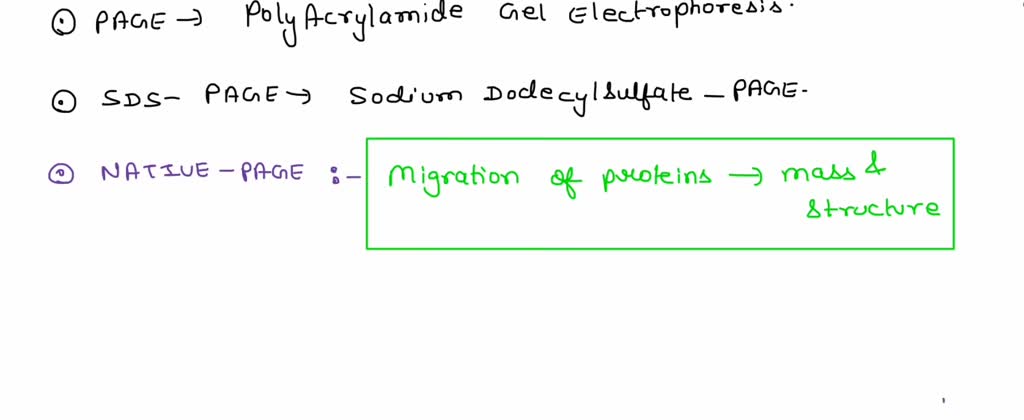 ⊙ PAGE → PolyAcrylamide Gel Electrophoresis.
⊙ SDS- PAGE → Sodium Dodecylsulfate - PAGE.
⊙ NATIVE - PAGE :- Migration of proteins → mass &
structure